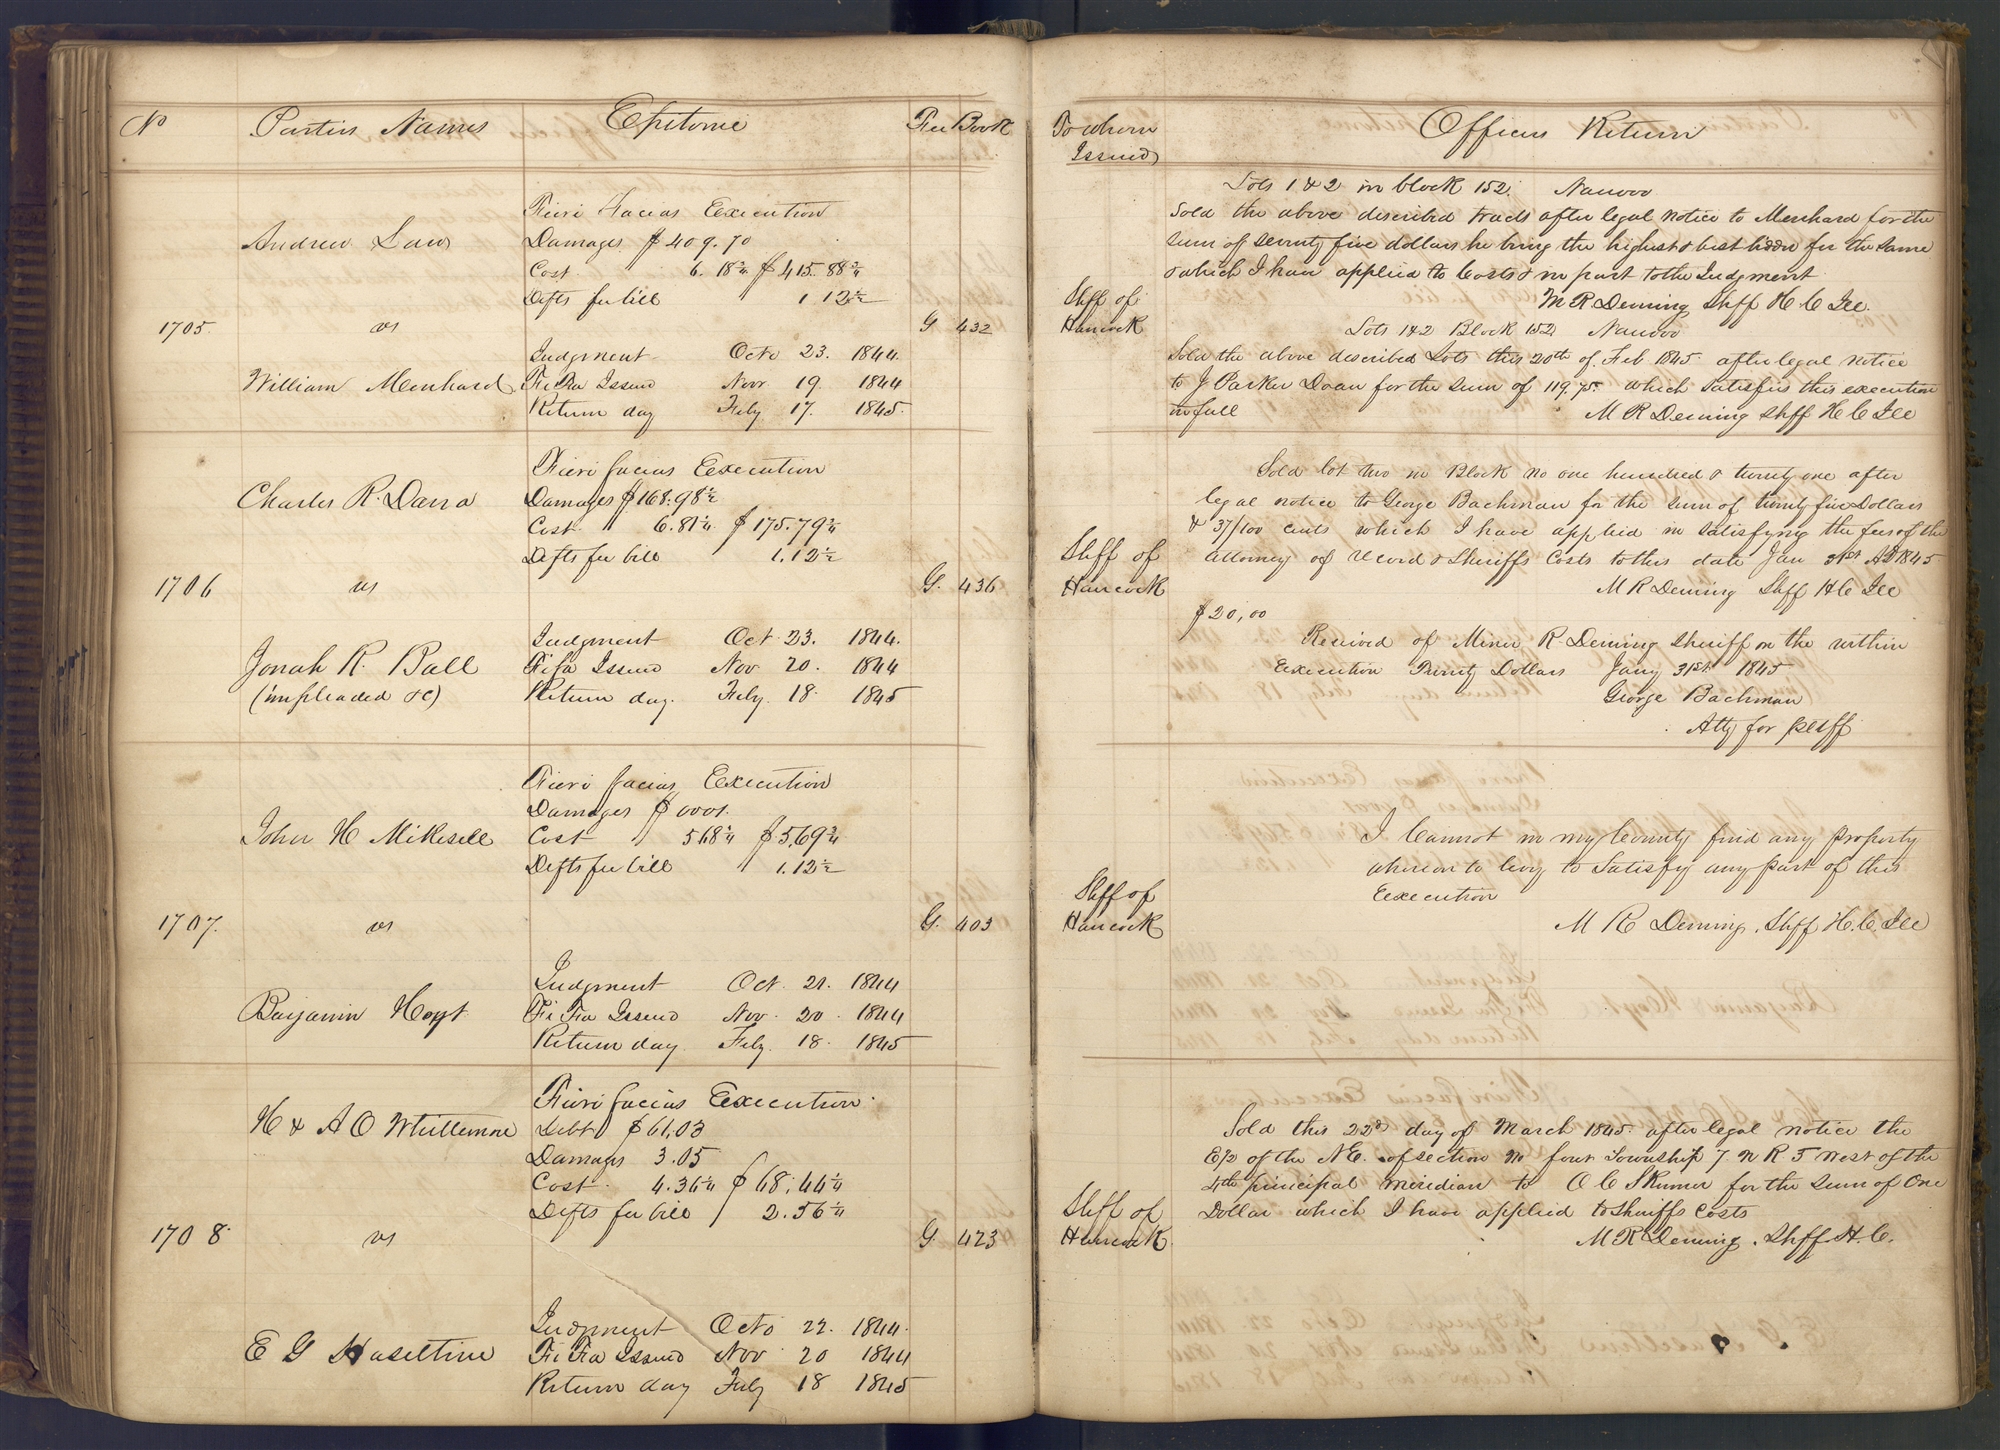 No Parties Names Epitome Fee Book
Fieri Facias Execution
Andrew Law Damages $409.70
Cost 6.18¾ $415.88¾
Defts fee bill 1 12½
1705 vs G 432
Judgment Octo 23. 1844.
William Menhard Fi Fa Issued Novr 19 1844
Return day Feby 17. 1845.
Fieri facias Execution
Charles R. Dana Damages $168.98½
Cost 6.81¼ $175.79¾
Defts fee bill 1.12½
1706 vs G. 436
Judgment Oct 23. 1844.
Jonah R. Ball Fi fa Issued Nov 20. 1844
(impleaded &c) Return day. Feby. 18. 1845
Fieri facias Execution
Damages $0001.
John H Mikesell Cost 5.68¾ $5.69¾
Defts fee bill 1.12½
1707. vs G. 403
Judgment Oct. 21. 1844
Benjamin Hoyt Fi Fa Issued Nov. 20. 1844
Return day Feby. 18. 1845
Fieri facias Execution.
H & A O Whittemore Debt $61,03
Damages 3.05
Cost. 4.36¼ $68,44¼
Defts fee bill 2.56¼
1708. vs G. 473
Judgment Octo 22. 1844.
E G Haseltine Fi Fa Issued Nov 20 1844
Return day Feby 18 1845
To whom Issued Officers Return
Lots 1 & 2 in block 152. Nauvoo
Sold the above discribed tracts after legal notice to Menhard for the
sum of seventy five dollars he being the highest & best bidder for the same
& which I have applied to Costs & in part to the Judgment
M R Deming Shff H C Ill.
Shff of
Hancock
Lots 1 & 2 Block 152 Nauvoo
Sold the above described Lots this 20th of Feb 1845. after legal notice
to J Parker Doan for the sum of 119.75. which satisfies this execution
in full M R Deming Shff H C Ill
Sold lot two in Block No one hundred & twenty one after
legal notice to George Bachman for the sum of twenty five Dollars
& 37/100 cents which I have applied in satisfying the fees of the
Attorney of record & Sheriffs Costs to this date Jan 31st AD 1845
Shff of
Hancock
M R Deming Shff H C Ill
$20,00
Received of Minor R. Deming Sheriff on the within
Execution Twenty Dollars Jany 31st 1845
George Bachman
Atty for pltff
I Cannot in my County find any property
whereon to levy to Satisfy any part of this
Execution
Shff of
Hancock
M R Deming. Shff H.C. Ill
Sold this 22d day of March 1845. after legal notice the
E/2 of the N.E. of section No four Township 7. N R 5 West of the
4th principal meridian to O C Skinner for the sum of One
Dollar which I have applied to Sheriffs Costs
Shff of
Hancock
M R Deming. Shff. H.C.